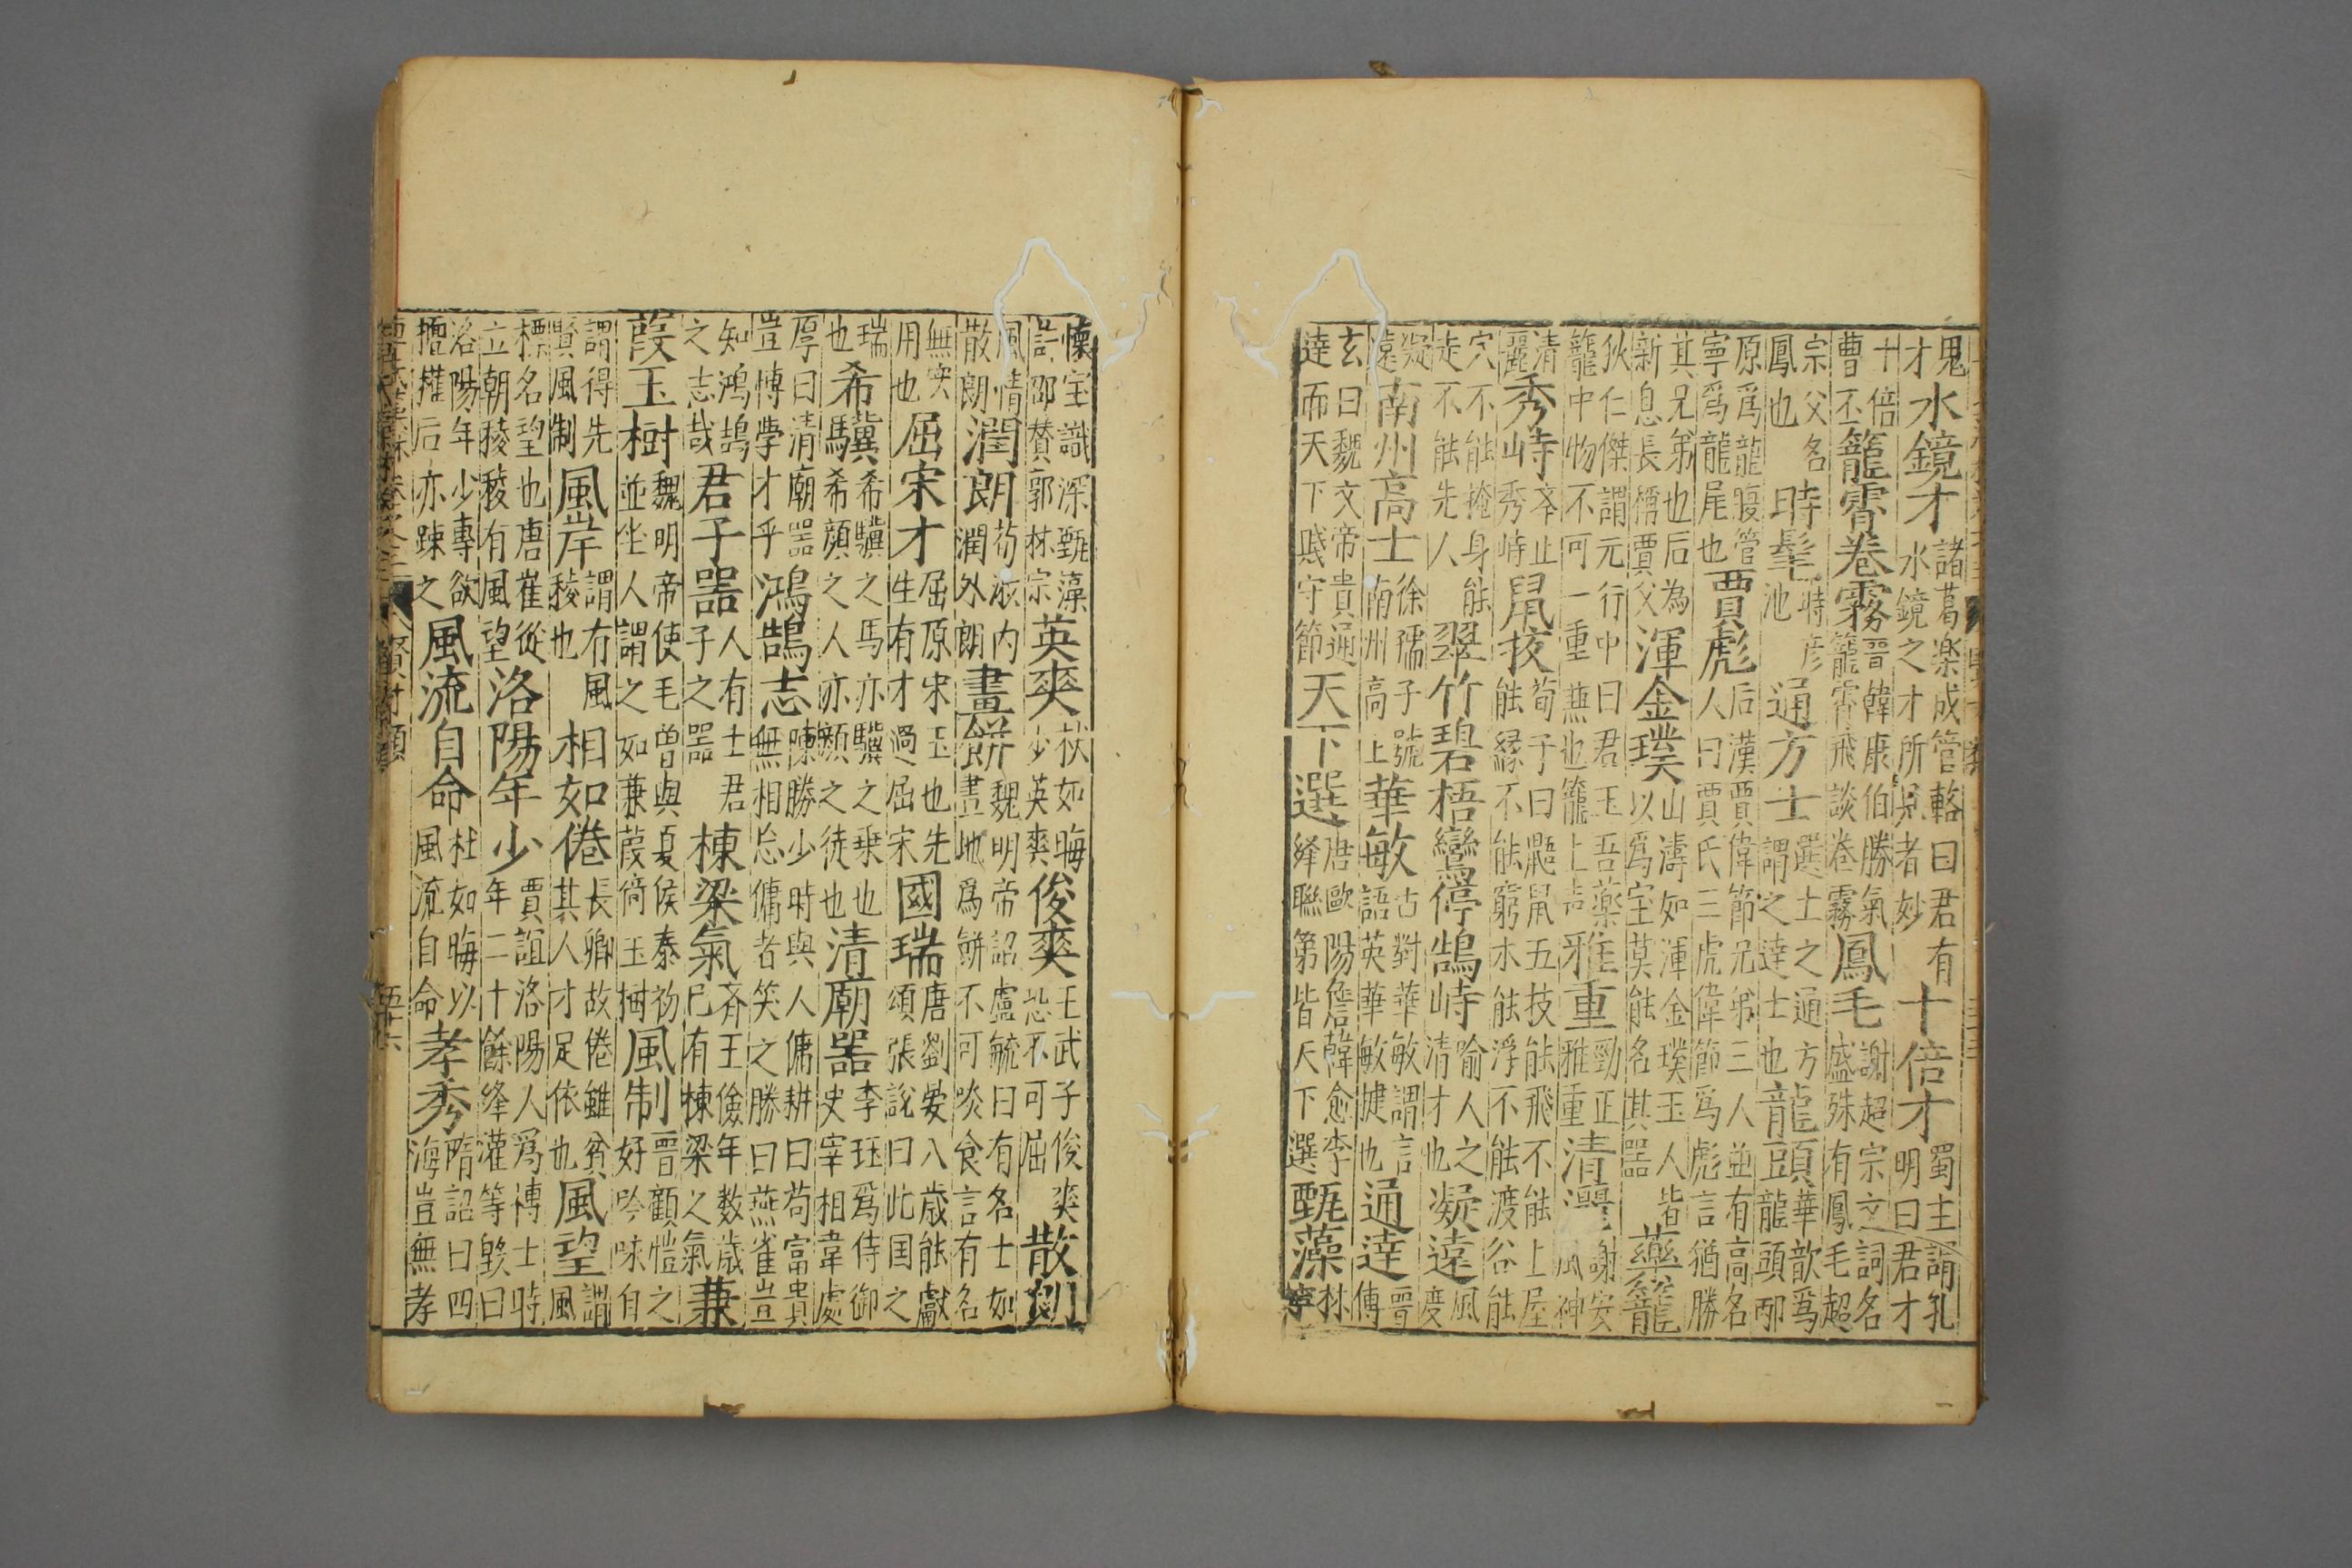 鬼才水鏡才諸葛㮈成管輅曰君有水鏡之才所見者妙十倍才蜀主謂孔明曰君才
十倍曹丕籠霄卷霧晉韓康伯勝氣籠霄飛談卷霧鳳毛謝超宗文詞名盛殊有鳳毛超
宗父名鳳也時髦時彦池通方士選士之通方謂之達士也龍頭華歆爲龍頭邴
原爲龍腹管寧爲龍尾也賈彪后漢賈偉節兄弟三人並有高名人曰賈氏三虎偉節爲彪言猶勝
其兄弟也后為新息長稱賈父渾金璞山濤如渾金璞玉人皆以爲宝莫能名其器藥籠
狄仁傑謂元行中曰君玉吾藥籠中物不可一重無也籠上声雅重勁正雅重清麗謝安風神
清麗秀峙夲止秀峙鼠技荀子曰鼯鼠五技能飛不能上屋能緣不能窮木能浮不能渡谷能
穴不能掩身能走不能先人翠竹碧梧鸞停鵠峙喻人之清才也凝遠風度
凝遠南州高士徐孺子號南州高上華敏古對華敏謂言語英華敏捷也通達晉傅
玄曰魏文帝貴通達而天下賤守節天下選唐歐陽詹韓愈李絳聯第皆天下選甄藻林寧
懐宝識深甄藻許邵賛郭林宗英爽杕如晦少英爽俊爽王武子俊爽恐不可屈散朗
風情散朗潤朗芳液内潤外朗畫餅魏明帝詔盧毓曰有名士如畫地爲餅不可啖食言有名
無实用也屈宋才屈原宋玉也先生有才過屈宋國瑞唐劉晏八歳能獻頌張說曰此国之
瑞也希驥希驥之馬亦驥之乗也希顏之人亦顏之徒也清廟器李珏爲侍御史宰相韋處
厚曰清廟器豈博學才乎鴻鵠志陳勝少時與人傭耕曰苟富貴無相忘傭者笑之勝曰燕雀豈
知鴻鵠之志哉君子器人有士君子之器棟梁氣斉王儉年数歳已有棟梁之氣蒹
葭玉樹魏明帝使毛曽與夏侯泰初並坐人謂之如蒹葭倚玉樹風制晉顧愷之好吟咏自
謂得先賢風制風岸謂有風稜也相如倦長卿故倦雖貧其人才足依也風望謂風
標名望也唐崔從立朝稜稜有風望洛陽年少賈誼洛陽人爲博士時年二十餘絳灌等毀曰
洛陽年少專欲擅權后亦踈之風流自命杜如晦以風流自命孝秀隋詔曰四海豈無孝